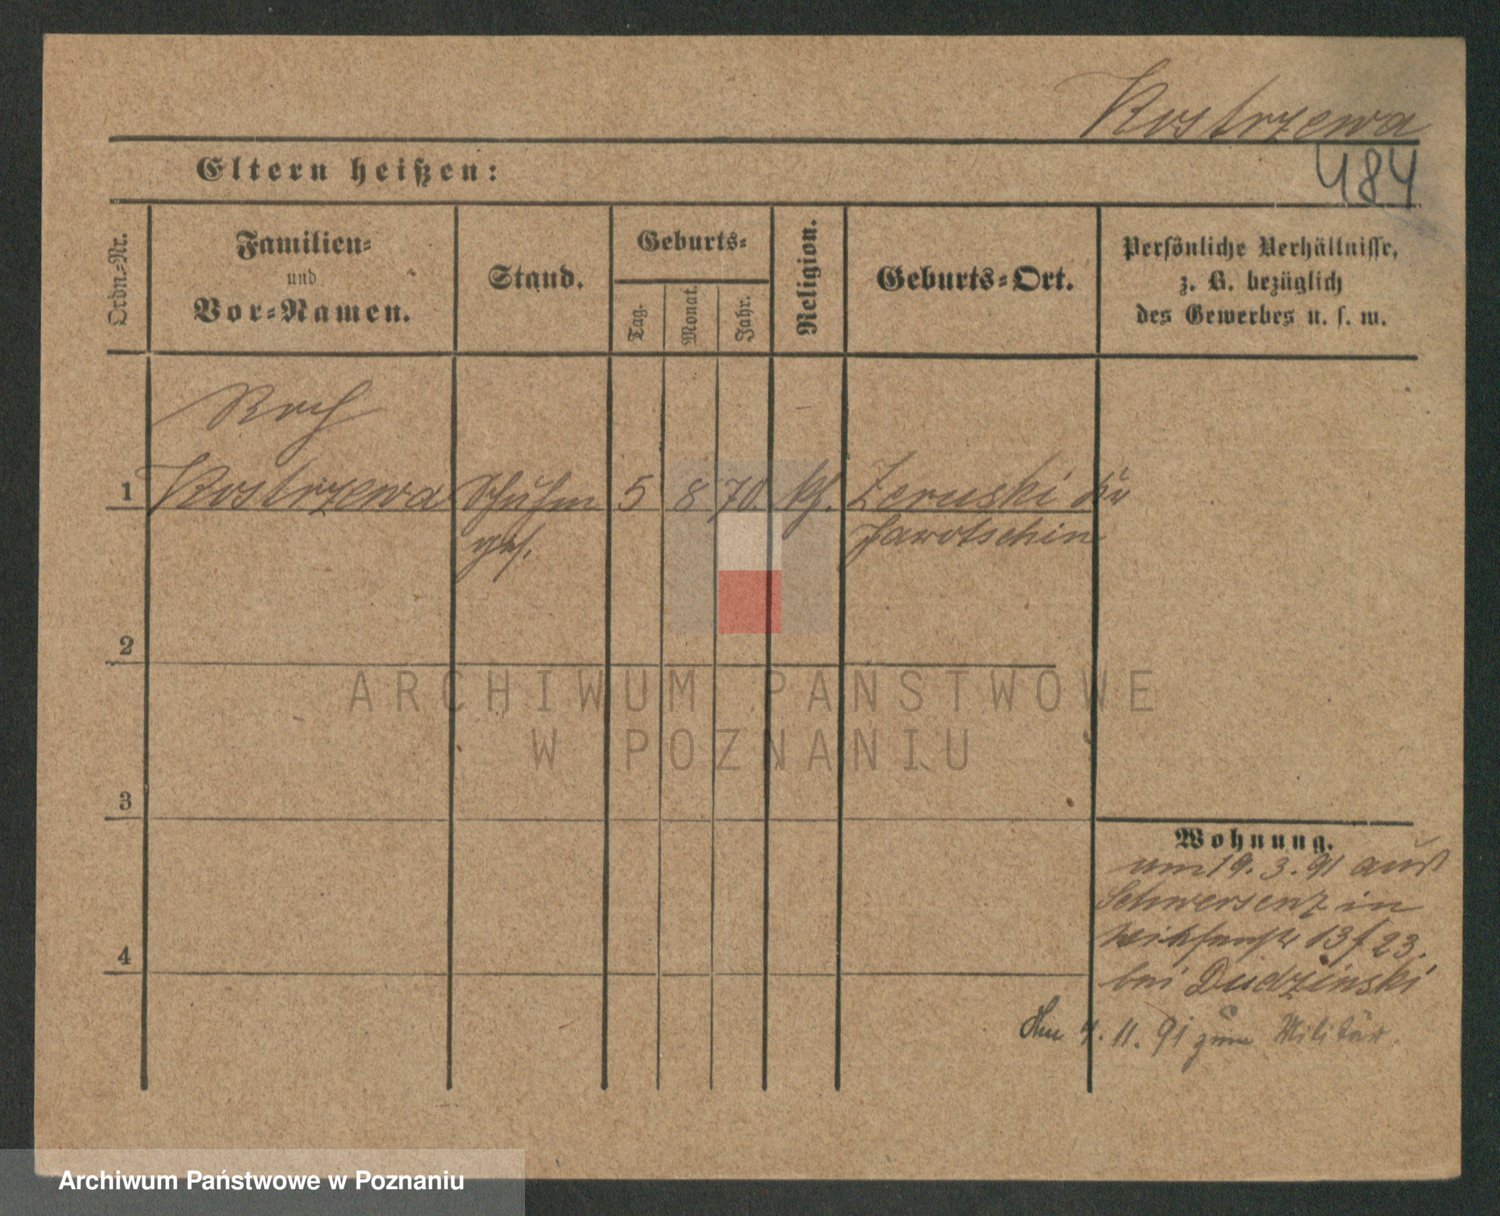 Kostrzewa
484
Eltern heißen:
Ordn.-Nr.
Familien-
und
Vor-Namen.
Stand.
Geburts-
Tag.
Monat.
Jahr.
Religion.
Geburts-Ort.
Persönliche Verhältnisse,
z. B. bezüglich
des Gewerbes u. s. w.
Roch
1 Kostrzewa Schuhm 5 8 70. kth. Zeruski Kr
ges. Jarotschin
2
ARCHIWUM PAŃSTWOWE
W POZNANIU
3
Wohnung.
am 19. 3. 91 aus
Schwersenz in
13 f 23.
4
bei Dudzinski
4. 11. 91 zum Militär.
Archiwum Państwowe w Poznaniu